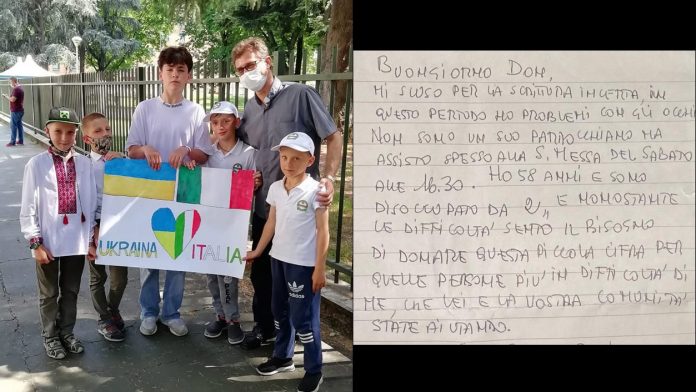 UKRAINA ITALIA
adidas
BUONGIORNO DON,
MI SCUSO PER LA SCRITTURA INCERTA, IN
QUESTO PERIODO HO PROBLEMI CON GLI OCCHI
NON SONO UN SUO PARROCCHIANO MA
ASSISTO SPESSO ALLA S. MESSA DEL SABATO
ALLE 16.30. HO 58 ANNI E SONO
DISOCCUPATO DA 2, E NONOSTANTE
LE DIFFICOLTA' SENTO IL BISOGNO
DI DONARE QUESTA PICCOLA CIFRA PER
QUELLE PERSONE PIU' IN DIFFICOLTA' DI
ME, CHE LEI E LA VOSTRA COMUNITA'
STATE AIUTANDO.